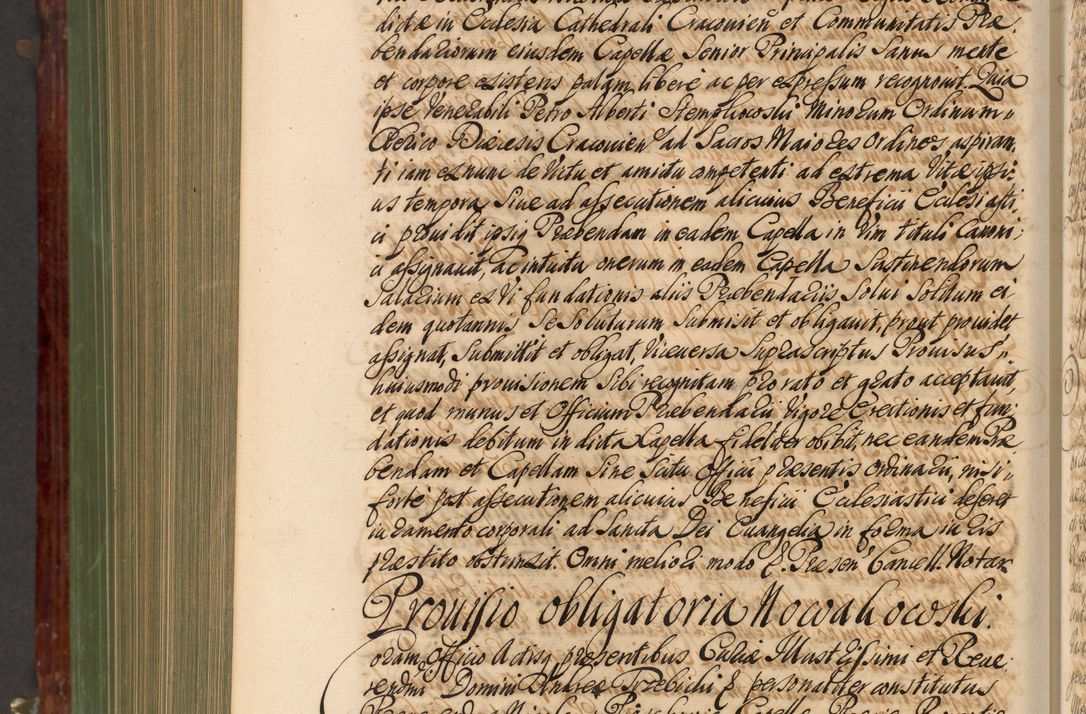 dictæ in Ecclesia Cathedrali Cracouien et Communitatis Præ
bendariorum eiusdem Capellæ Senior Principalis Sanus mente
et corpore existens palam libere ac per expressum recognouit. Quia
ipse Venerabili Petro Alberti Stemplkowski Minorum Ordinum
Clerico Diæcesis Cracouien ad Sacros Maiores Ordines aspiran
ti iam ex nunc de Victu et amictu competenti ad extrema Vitæ ipsi
us tempora, Siue ad assecutionem alicuius Beneficii Ecclesiasti
ci prouidit ipsiq Præbendam in eadem Capella in Vim tituli Canoni
ci assignauit, Ac intuitu onerum in eadem Capella Sustinendorum
Salarium ex Vi fundationis aliis Præbendariis Solui Solitum ei
dem quotannis Se Soluturum Submisit et obligauit, prout prouidet
assignat, Submittit et obligat, Viceuersa Suprascriptus Prouisus
huiusmodi prouisionem Sibi recognitam pro rato et grato acceptauit,
et quod munus et Officium Præbendarii Vigore Erectionis et fun
dationis debitum in dicta Capella fideliter obibit, nec eandem Præ
bendam et Capellam Sine Scitu Officii præsentis Ordinarii, nisi
forte post assecutionem alicuius Beneficii Ecclesiastici deseret
iuramento corporali ad Sancta Dei Euangelia in forma iuris
præstito obstrinxit. Omni meliori modo P. Præsen Cancell. Notar
Prouisio obligatoria Nowakowski.
oram Officio Actisq præsentibus Curiæ Illustrissimi et Reue
rendmi Domini Andreæ Trzebicki P personaliter constitutus